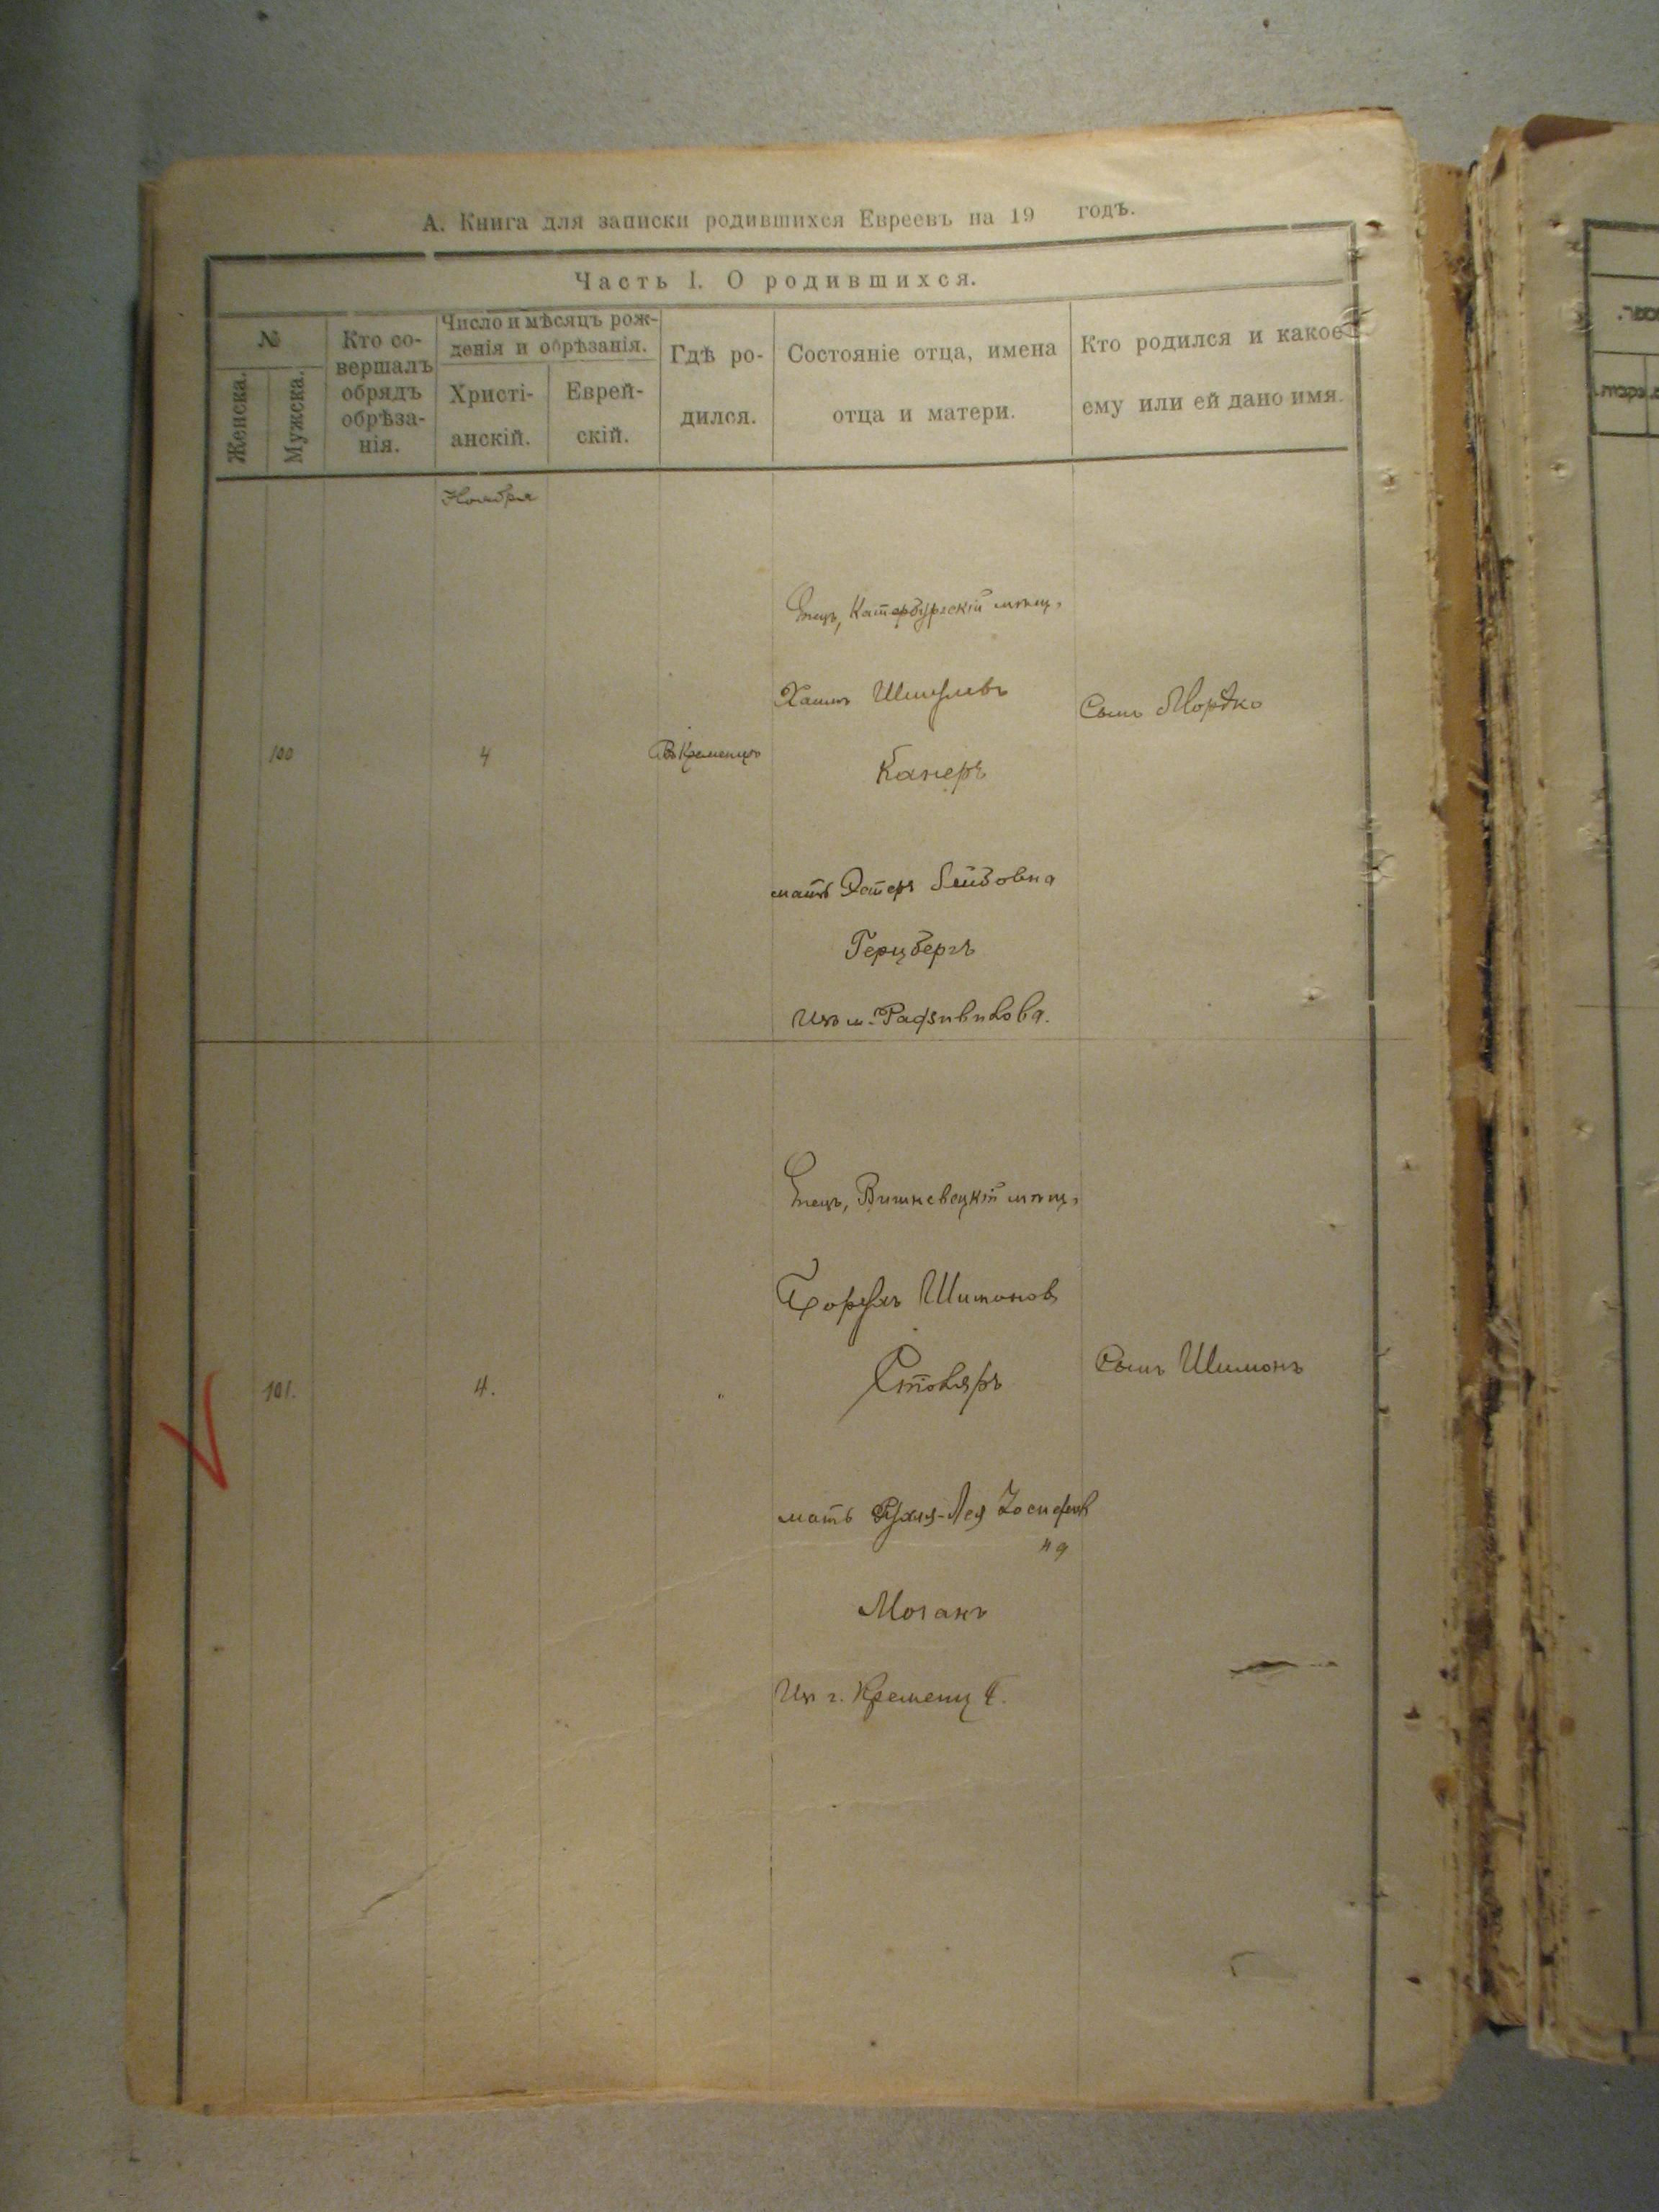 А. Книга для записки родившихся Евреевъ на 19 годъ.
Часть I. О родившихся.
№
Женска.
Мужска.
Кто со-
вершалъ
обрядъ
обрѣза-
нія.
Число и мѣсяцъ рож-
денія и обрѣзанія.
Христі-
анскій.
Еврей-
скій.
Гдѣ ро-
дился.
Состояніе отца, имена
отца и матери.
Кто родился и какое
ему или ей дано имя.
Ноября
100
4
Въ Кременцѣ
Отецъ, Катербургскій мѣщ.
Хаимъ Шмулевъ
Канеръ
мать Эстеръ Лейбовна
Герцбергъ
Изъ м. Радзивилова.
Сынъ Мордко
101.
4.
"
Отецъ, Вишневецкій мѣщ.
Борухъ Шимонов
Столяръ
мать Рухля-Лея Іосифов
на
Изъ г. Кременца.
Сынъ Шимонъ